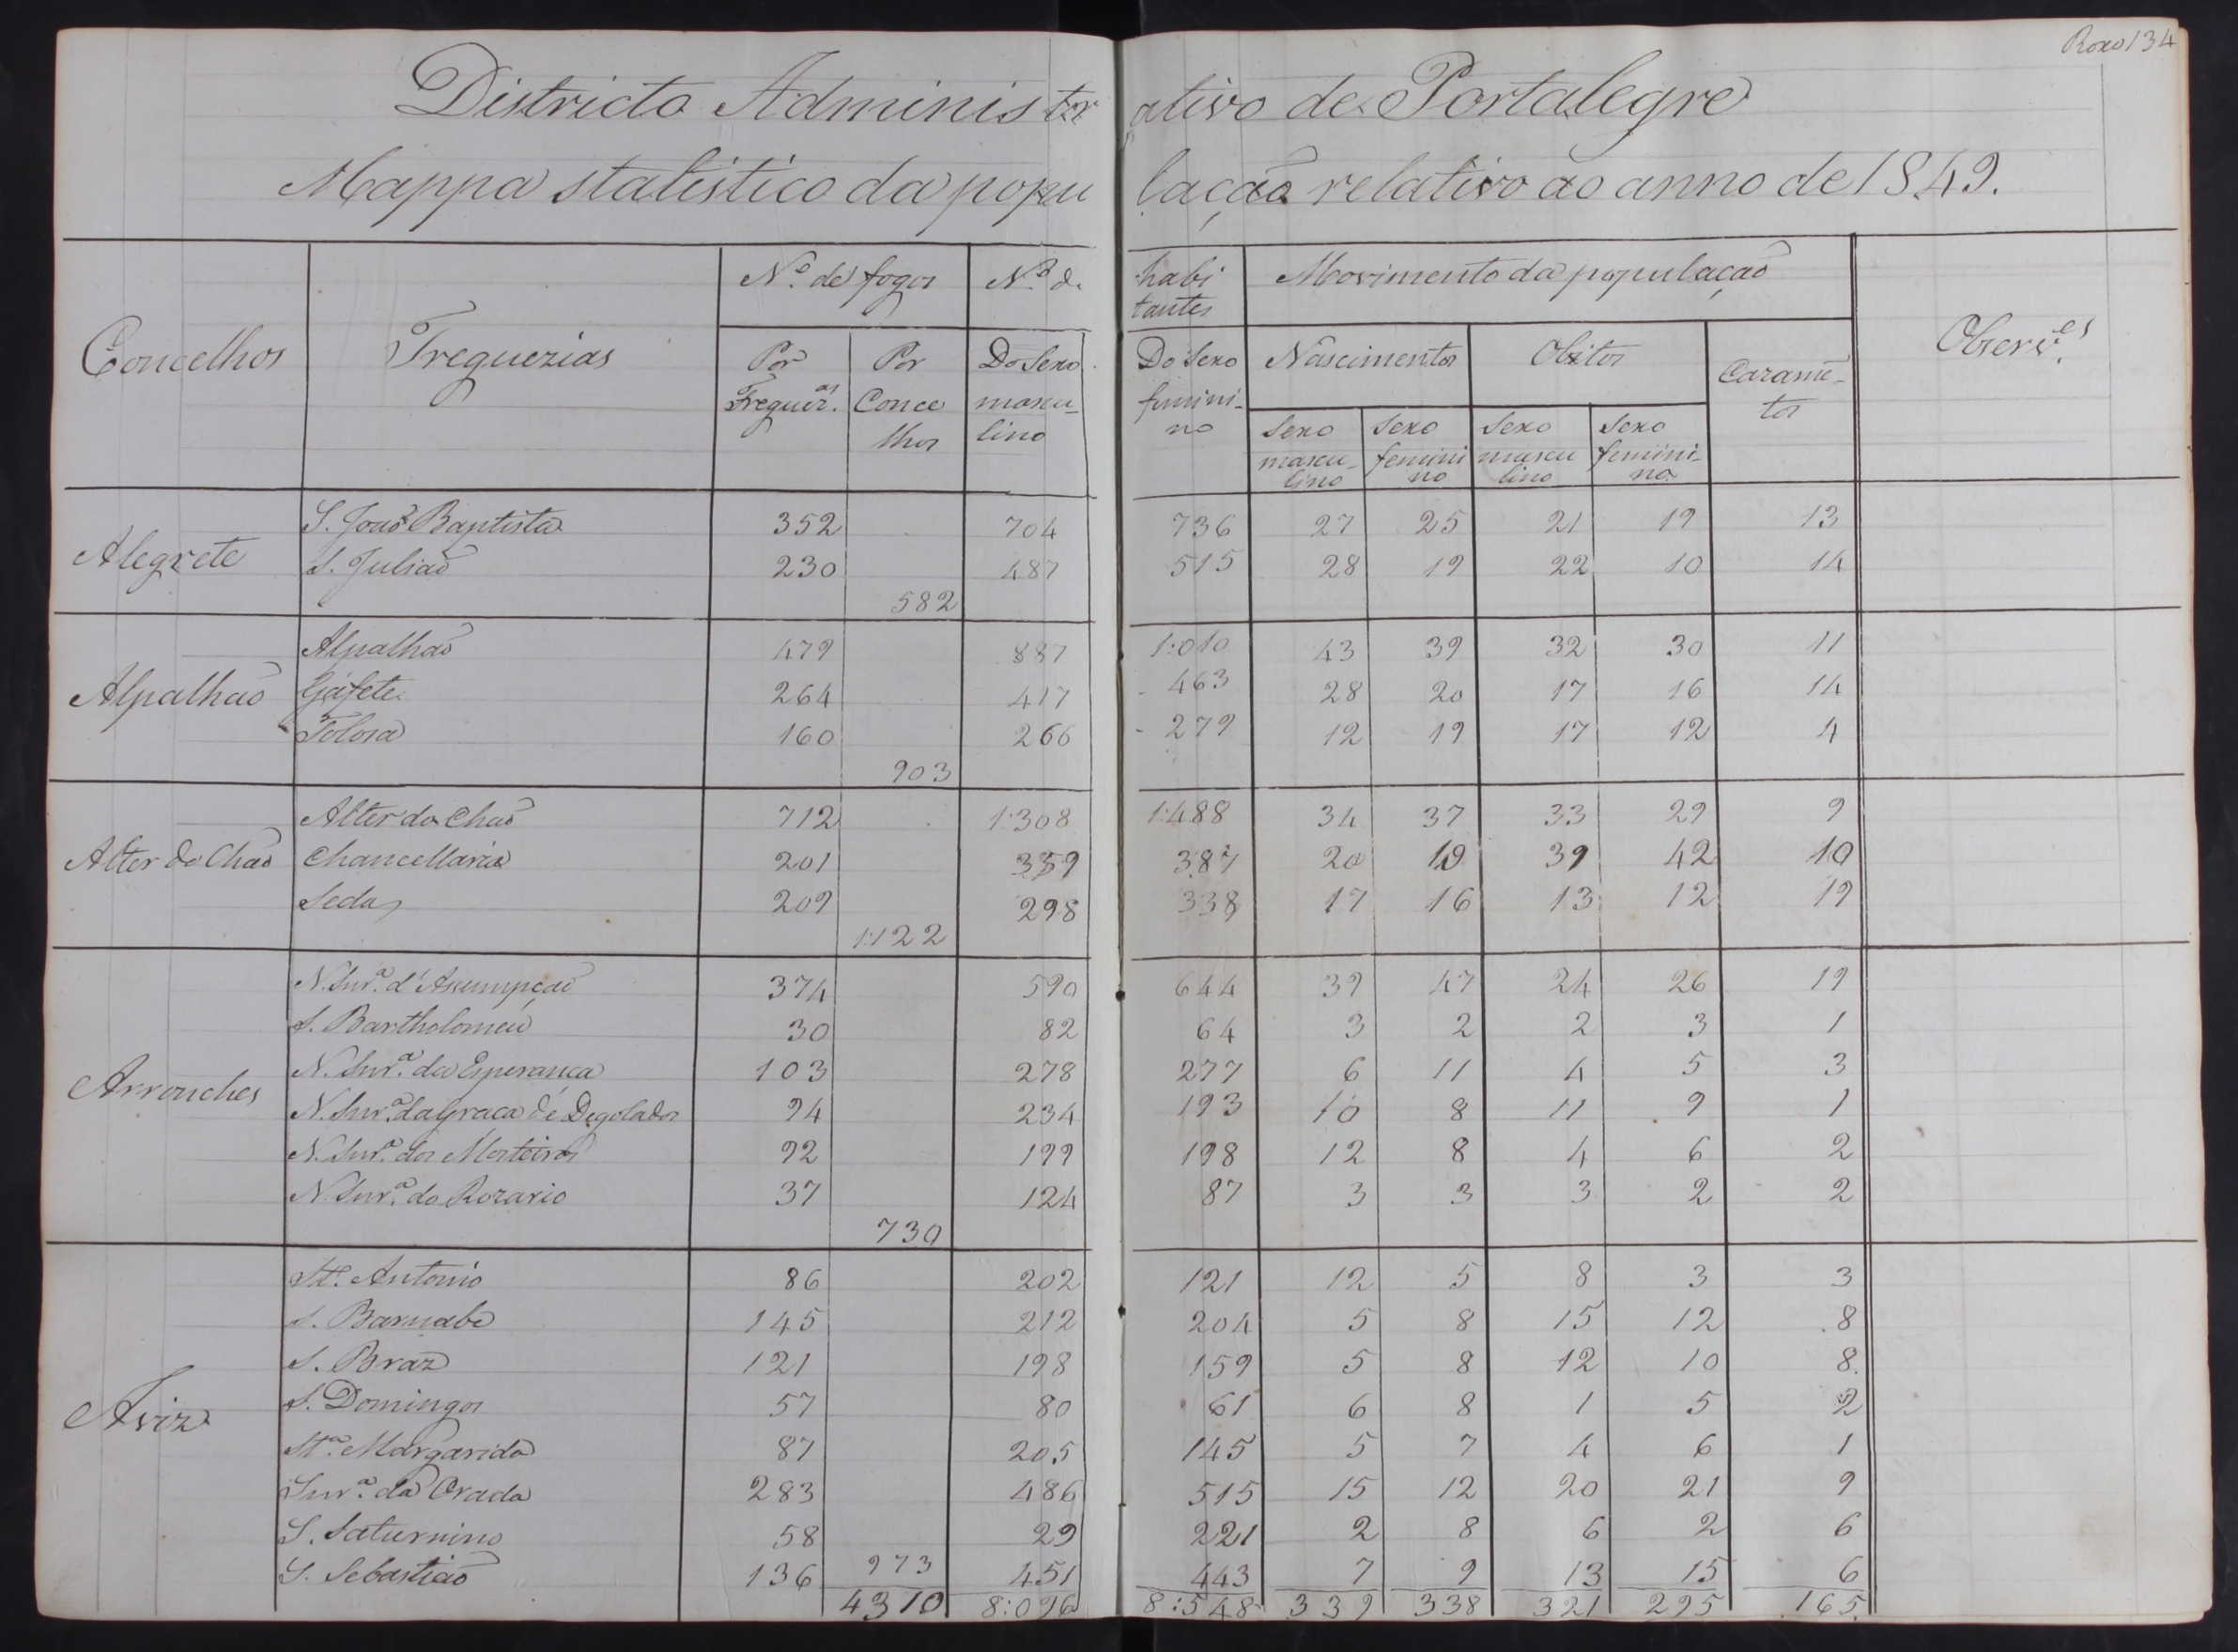 Roxo 134
Districto Administrativo de Portalegre
Mappa statistico da população relativo ao anno de 1849.
Concelhos Freguezias Nº de fogos Nº de habitantes Movimento da população Observ.es
Por Freguez.as Por Concelhos Do Sexo masculino Do Sexo feminino Nascimentos Obitos Casamentos
Sexo masculino Sexo feminino Sexo masculino Sexo feminino
Alegrete
S. João Baptista 352 704 736 27 25 21 19 13
S. Julião 230 487 515 28 19 22 10 14
582
Alpalhão
Alpalhão 479 887 1:010 43 39 32 30 11
Gáfete 264 417 463 28 20 17 16 14
Tolosa 160 266 279 12 19 17 12 4
903
Alter do Chão
Alter do Chaõ 712 1:308 1:488 34 37 33 29 9
Chancellaria 201 359 387 20 19 39 42 10
Seda 209 298 338 17 16 13 12 19
1:122
Arronches
N. Snr.ª d'Assumpção 374 590 644 39 47 24 26 19
S. Bartholomeu 30 82 64 3 2 2 3 1
N. Snr.ª da Esperança 103 278 277 6 11 4 5 3
N. Snr.ª da Graça dé Degolados 94 234 193 10 8 11 9 1
N. Snr.ª dos Mosteiros 92 199 198 12 8 4 6 2
N. Snr.ª do Rozario 37 124 87 3 3 3 2 2
730
Aviz
Stº. Antonio 86 202 121 12 5 8 3 3
S. Barnabe 145 212 204 5 8 15 12 8
S. Braz 121 198 159 5 8 12 10 8
S. Domingos 57 80 61 6 8 1 5 2
Stª. Margarida 87 205 145 5 7 4 6 1
Snr.ª da Orada 283 486 515 15 12 20 21 9
S. Saturnino 58 29 221 2 8 6 2 6
S. Sebastião 136 973 451 443 7 9 13 15 6
4310 8:096 8:548 339 338 321 295 165